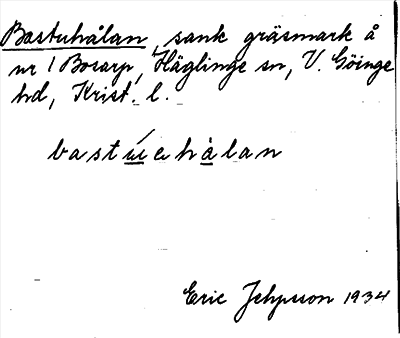 Bastuhålan, sank gräsmark å
nr 1 Bosarp, Häglinge sn, V. Göinge
hd, Krist. l.
bastúehålan
Eric Jehpsson 1934